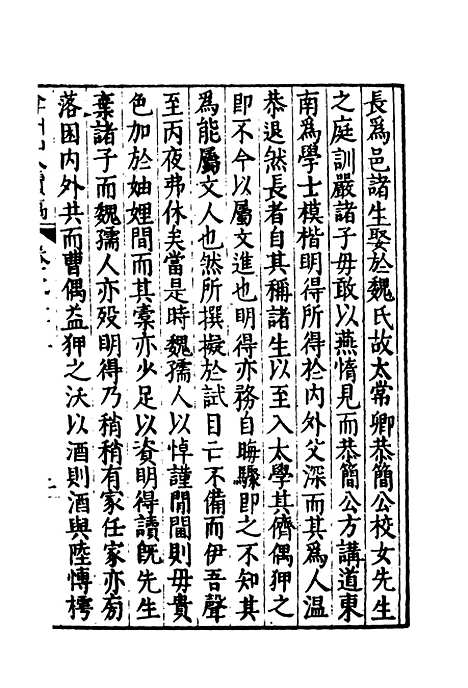 長爲邑諸生娶於魏氏故太常卿恭簡公校女先生
之庭訓嚴諸子毋敢以燕惰見而恭簡公方講道東
南爲學士模楷明得所得於內外父深而其爲人溫
恭退然長者自其稱諸生以至入太學其儕偶狎之
即不令以屬文進也明得亦務自晦驟即之不知其
爲能屬文人也然所撰擬於試目亡不備而伊吾聲
至丙夜弗休矣當是時魏孺人以悼謹閒閫則毋貴
色加於妯娌間而其橐亦少足以資明得讀旣先生
棄諸子而魏孺人亦歿明得乃稍稍有家任家亦旁
落困內外共而曹偶益狎之沃以酒則酒與陸慱樗